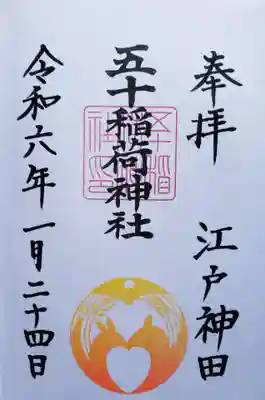 奉拝
江戸神田
五十稲荷神社
令和六年一月二十四日